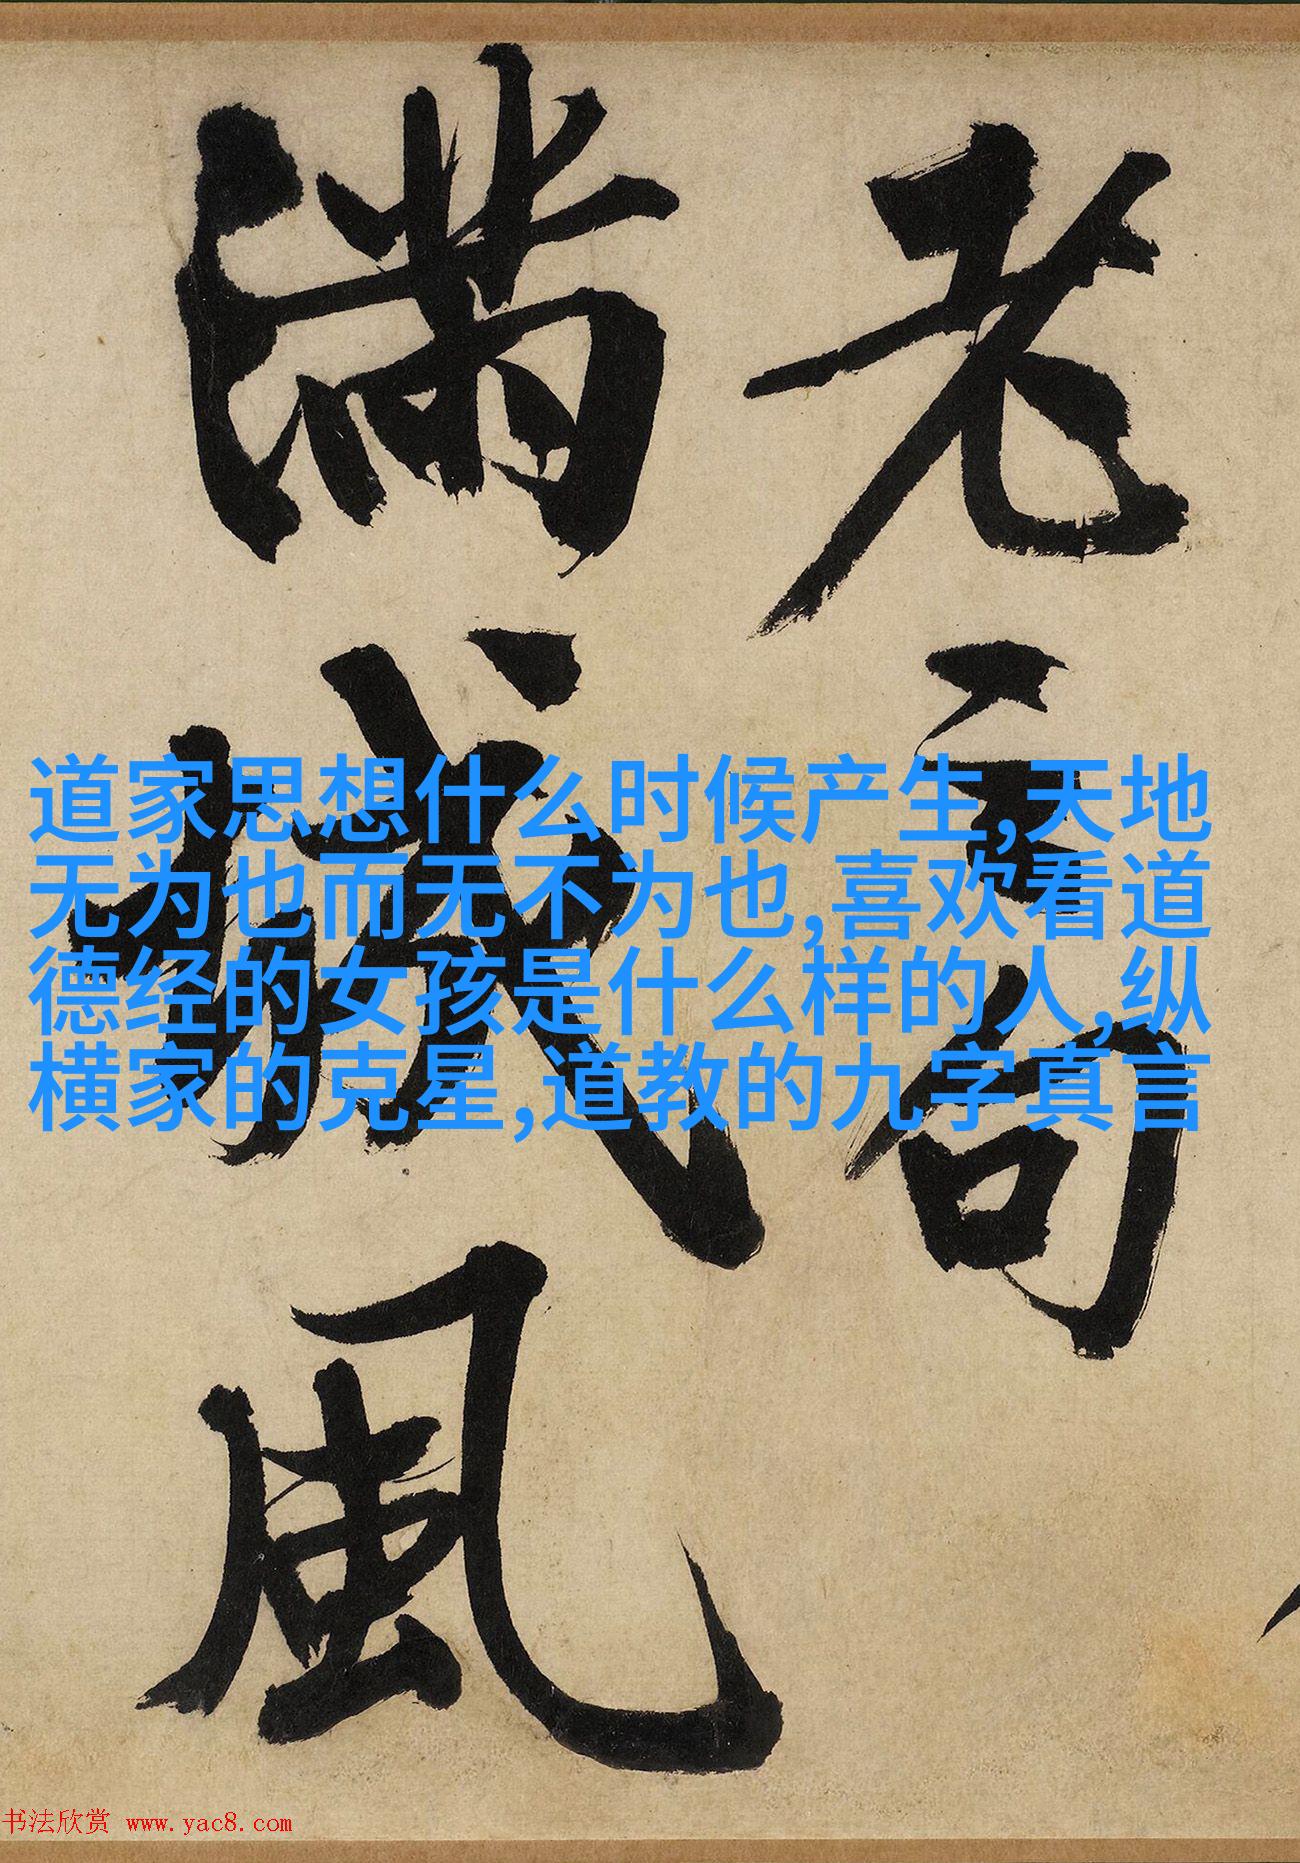 老言句
满城風
道家思想什么时候产生,天地
无为也而无不为也,喜欢看道
德经的女孩是什么样的人,纵
横家的克星,道教的九字真言
书法欣赏 www.yac8.com